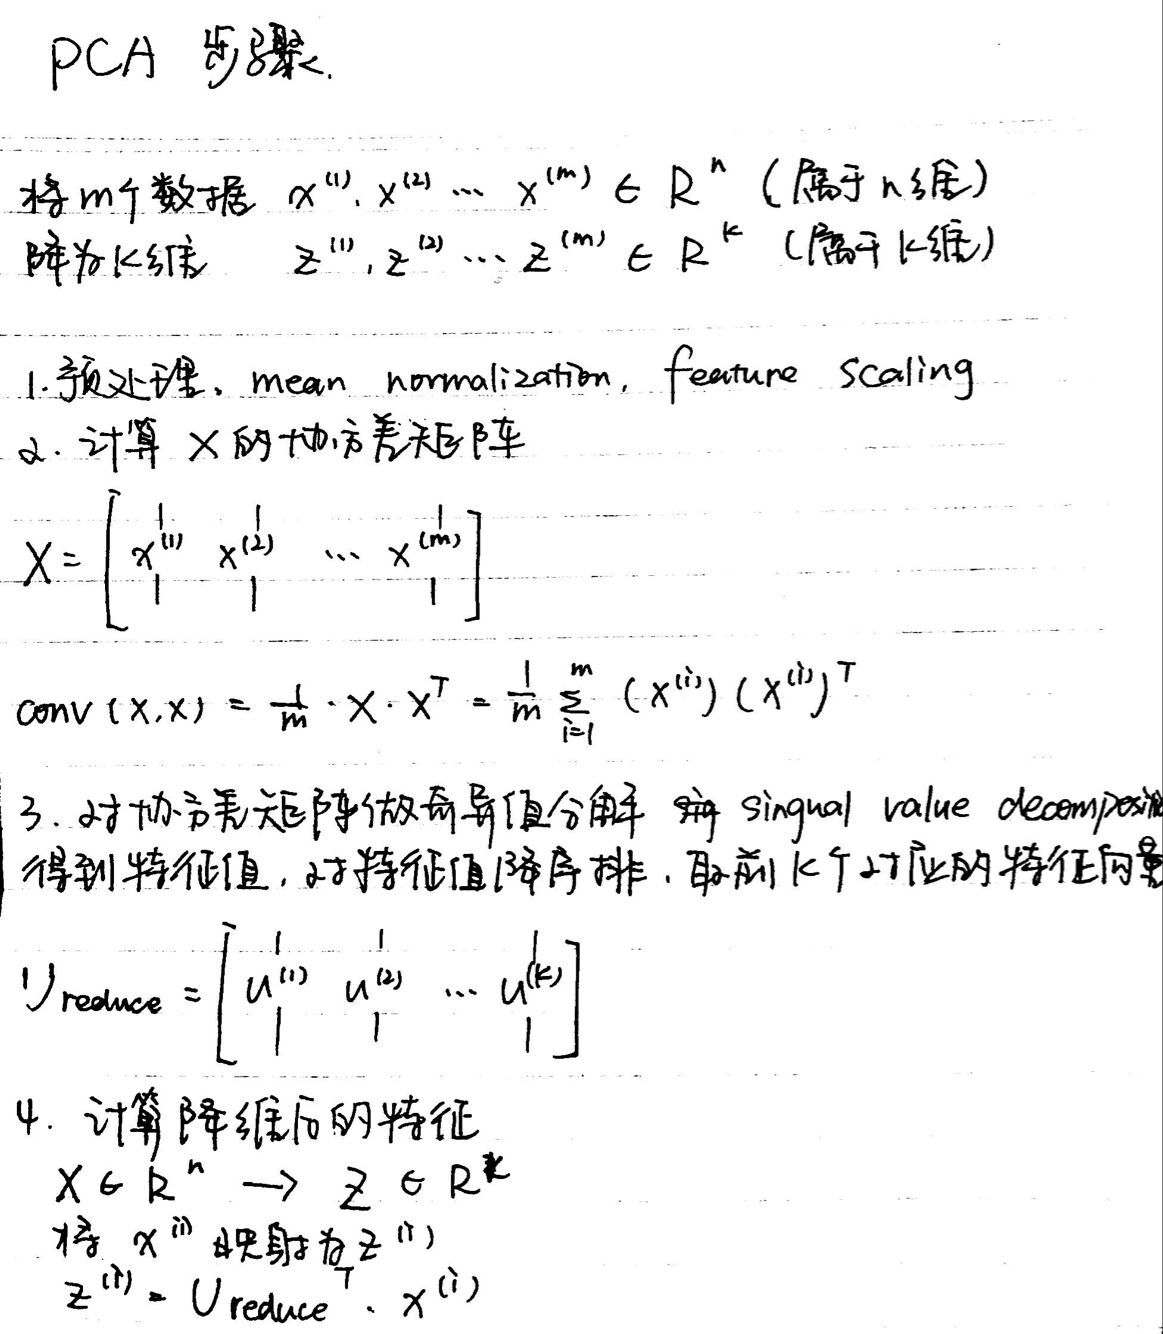 PCA 步骤.
将m个数据 x^(1), x^(2) ... x^(m) ∈ R^n (属于n维)
降为k维 z^(1), z^(2) ... z^(m) ∈ R^k (属于k维)
1. 预处理, mean normalization, feature scaling
2. 计算 X 的协方差矩阵
X = [ x^(1) x^(2) ... x^(m) ]
conv (x,x) = 1/m · X · X^T = 1/m Σ_{i=1}^{m} (x^(i)) (x^(i))^T
3. 对协方差矩阵做奇异值分解 singual value decomposi
得到特征值, 对特征值降序排, 取前k个对应的特征向量
U reduce = [ u^(1) u^(2) ... u^(k) ]
4. 计算降维后的特征
X ∈ R^n → Z ∈ R^k
将 x^(i) 映射为 z^(i)
z^(i) = U reduce^T · x^(i)